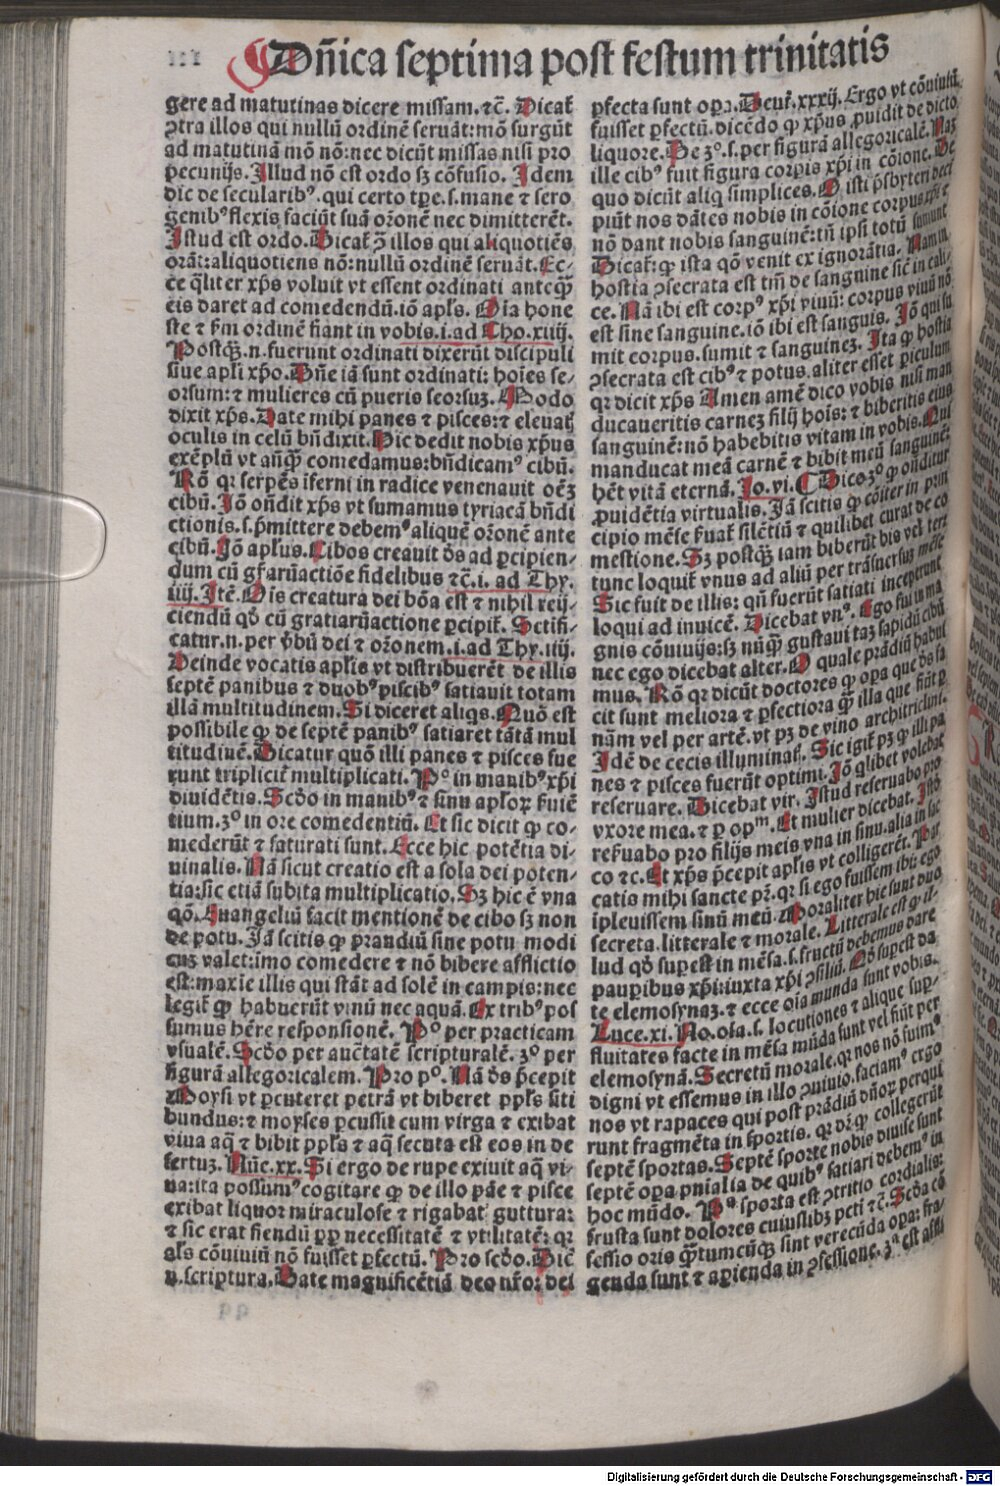 Dñica septima post festum trinitatis
gere ad matutinas dicere missam. ⁊c̄. Dicat̃
ꝯtra illos qui nullū ordinē seruāt: mō surgūt
ad matutinā mō nō: nec dicūt missas nisi pro
pecunijs. Illud nō est ordo sꝫ cōfusio. Idem
dic de secularibꝰ. qui certo tꝑe. s. mane ⁊ sero
genibꝰ flexis faciūt suā oꝛonē nec dimitterēt.
Istud est ordo. Dicat̃ ꝯ̄ illos qui aliquotiēs
orāt: aliquotiens nō: nullū ordinē seruāt. Ec⸗
ce q̄liter xp̄s voluit vt essent ordinati anteq̄ꝫ
eis daret ad comedendū. iō apl̄s. Oīa hone
ste ⁊ ẜm ordinē fiant in vobis. i. ad Cho. xiiij.
Postq̄ꝫ. n. fuerunt ordinati dixerūt discipuli
siue apl̄i xp̄o. Dn̄e iā sunt ordinati: hoīes se⸗
orsum: ⁊ mulieres cū pueris seorsuꝫ. Modo
dixit xp̄s. Date mihi panes ⁊ pisces: ⁊ eleuatꝭ
oculis in celū bn̄dixit. Hic dedit nobis xp̄us
exēplū vt añq̄ꝫ comedamus: bn̄dicamꝰ cibū.
Rō qꝛ serpēs īferni in radice venenauit oēꝫ
cibū. Iō on̄dit xp̄s vt sumamus tyriacā bn̄di
ctionis. s. p̄mittere debemꝰ aliquē oꝛonē ante
cibū. Iō apl̄us. Cibos creauit ds̄ ad ꝑcipien⸗
dum cū gr̄aruȝactiōe fidelibus ⁊c̄. i. ad Thy.
iiij. Itē. Ois creatura dei bōa est ⁊ nihil reij⸗
ciendū qd̄ cū gratiaruȝactione ꝑcipit̃. Sctifi⸗
catur. n. per v̄bū dei ⁊ oꝛonem. i. ad Thy. iiij.
Deinde vocatis apl̄is vt distribuerēt de illis
septē panibus ⁊ duobꝰ piscibꝰ satiauit totam
illā multitudinem. Si diceret aliqs. Quō est
possibile ꝙ de septē panibꝰ satiaret tātā mul
titudinē. Dicatur quō illi panes ⁊ pisces fue
runt tripliciẽ multiplicati. Pº in manibꝰ xp̄i
diuidētis. Scd̄o in manibꝰ ⁊ sinu apl̄oꝝ ẜuiē
tium. 3º in ore comedentiū. Et sic dicit ꝙ co⸗
mederūt ⁊ saturati sunt. Ecce hic potētia di⸗
uinalis. Nā sicut creatio est a sola dei poten⸗
tia: sic etiā subita multiplicatio. Sꝫ hic ē vna
qō. Euangeliū facit mentionē de cibo sꝫ non
de potu. Iā scitis ꝙ prandiū sine potu modi
cuꝫ valet: īmo comedere ⁊ nō bibere afflictio
est: maxie illis qui stāt ad solē in campis: nec
legit̃ ꝙ habuerūt vinū nec aquā. Ex tribꝰ pos
sumus hēre responsionē. Pº per practicam
vsualē. Scd̄o per auc̄tatē scripturalē. 3º per
figurā allegoricalem. Pro pº. Nā ds̄ p̄cepit
Moysi vt ꝑcuteret petrā vt biberet ppl̄s siti
bundus: ⁊ moyses ꝑcussit cum virga ⁊ exibat
viua aq̄ ⁊ bibit ppl̄s ⁊ aq̄ secuta est eos in de
sertuꝫ. Nūe. xx. Si ergo de rupe exiuit aq̄ vi⸗
ua: ita possumꝰ cogitare ꝙ de illo pāe ⁊ pisce
exibat liquor miraculose ⁊ rigabat guttura:
⁊ sic erat fiendū ꝓp necessitatē ⁊ vtilitatē: qꝛ
al̄s cōuiuiū nō fuisset ꝑfectū. Pro scd̄o. Dic̄
n. scriptura. Date magnificētiā deo nr̄o: dei
ꝑfecta sunt oꝑa. Deut̃. xxxij. Ergo vt cōuiuiū
fuisset ꝑfectū. dicēdo ꝙ xp̄us ꝓuidit de dicto
liquore. De 3º. s. per figurā allegoricalē. Naꝫ
ille cibꝰ fuit figura corpis xp̄i in cōione. De
quo dicūt aliq̄ simplices. O isti p̄sbyteri deci
piūt nos dātes nobis in cōione corpus xp̄i ⁊
nō dant nobis sanguinē: tn̄ ipsi totū sumunt
Dicat̃: ꝙ ista qō venit ex ignorātia. Nam in
hostia ꝯsecrata est tm̄ de sanguine sic̄ in cali⸗
ce. Nā ibi est corpꝰ xp̄i viuū: corpus viuū nō
est sine sanguine. iō ibi est sanguis. Iō qui su
mit corpus. sumit ⁊ sanguinēꝫ. Ita ꝙ hostia
ꝯsecrata est cibꝰ ⁊ potus. aliter esset ꝑiculum
qꝛ dicit xp̄s Amen amē dico vobis nisi man
ducaueritis carneꝫ filij hoīs: ⁊ biberitis eius
sanguinē: nō habebitis vitam in vobis. Qui
manducat meā carnē ⁊ bibit meū sanguinē:
hēt vitā eternā. Jo. vi. Dico 3º ꝙ on̄ditur
ꝓuidētia virtualis. Iā scitis ꝙ cōiter in prin
cipio mēse ẜuat̃ silētiū ⁊ quilibet curat de co
mestione. Sꝫ postq̄ꝫ iam biberūt bis vel ter:
tunc loquit̃ vnus ad aliū per trāsuersuꝫ mēse
Sic fuit de illis: qñ fuerūt satiati inceperunt
loqui ad inuicē. Dicebat vnꝰ. Ego fui in ma
gnis cōuiuijs: sꝫ nūq̄ꝫ gustaui taꝫ sapidū cibū
nec ego dicebat alter. O quale prādiū habui
mus. Rō qꝛ dicūt doctores ꝙ oꝑa que ds̄ fa
cit sunt meliora ⁊ ꝑfectiora q̄ꝫ illa que fiūt ꝑ
nām vel per artē. vt pꝫ de vino architriclini.
Idē de cecis illuminat̃. Sic igit̃ pꝫ ꝙ illi pa
nes ⁊ pisces fuerūt optimi. Iō qͥlibet volebat
reseruare. Dicebat vir. Istud reseruabo pro
vxore mea. ⁊ ꝑ opᵐ. Et mulier dicebat. Istō
reẜuabo pro filijs meis vna in sinu. alia in sac
co ⁊c. Et xp̄s p̄cepit apl̄is vt colligerēt. Par
catis mihi sancte pr̄. qꝛ si ego fuissem ibi: ego
ipleuissem sinū meū. Moraliter hic sunt duo
secreta. litterale ⁊ morale. Litterale est ꝙ il⸗
lud qd̄ suꝑest in mēsa. s. fructū debemus dare
pauꝑibus xp̄i: iuxta xp̄i ꝯsiliū. Qd̄ suꝑest da
te elemosynaꝫ. ⁊ ecce oīa munda sunt vobis.
Luce. xi. No. oīa. s. locutiones ⁊ alique suꝑ⸗
fluitates facte in mēsa mūda sunt vel fiūt per
elemosynā. Secretū morale. qꝛ nos nō fuimꝰ
digni vt essemus in illo ꝯuiuio. faciamꝰ ergo
nos vt rapaces qui post prādiū dn̄oꝝ perqui
runt fragmēta in sportis. qꝛ dr̄ ꝙ collegerūt
septē sportas. Septē sporte nobis diuise sunt
septē oꝑa pn̄ialia de quibꝰ satiari debemꝰ in
hoc mūdo. Pª sporta est ꝯtritio cordialis:
frusta sunt dolores cuiuslibꝫ pcti ⁊c̄. Scd̄a cō
fessio oris q̄ꝫtumcūqꝫ sint verecūda oꝑa: fra⸗
genda sunt ⁊ aꝑienda in ꝯfessione. 3ª est
Digitalisierung gefördert durch die Deutsche Forschungsgemeinschaft - DFG